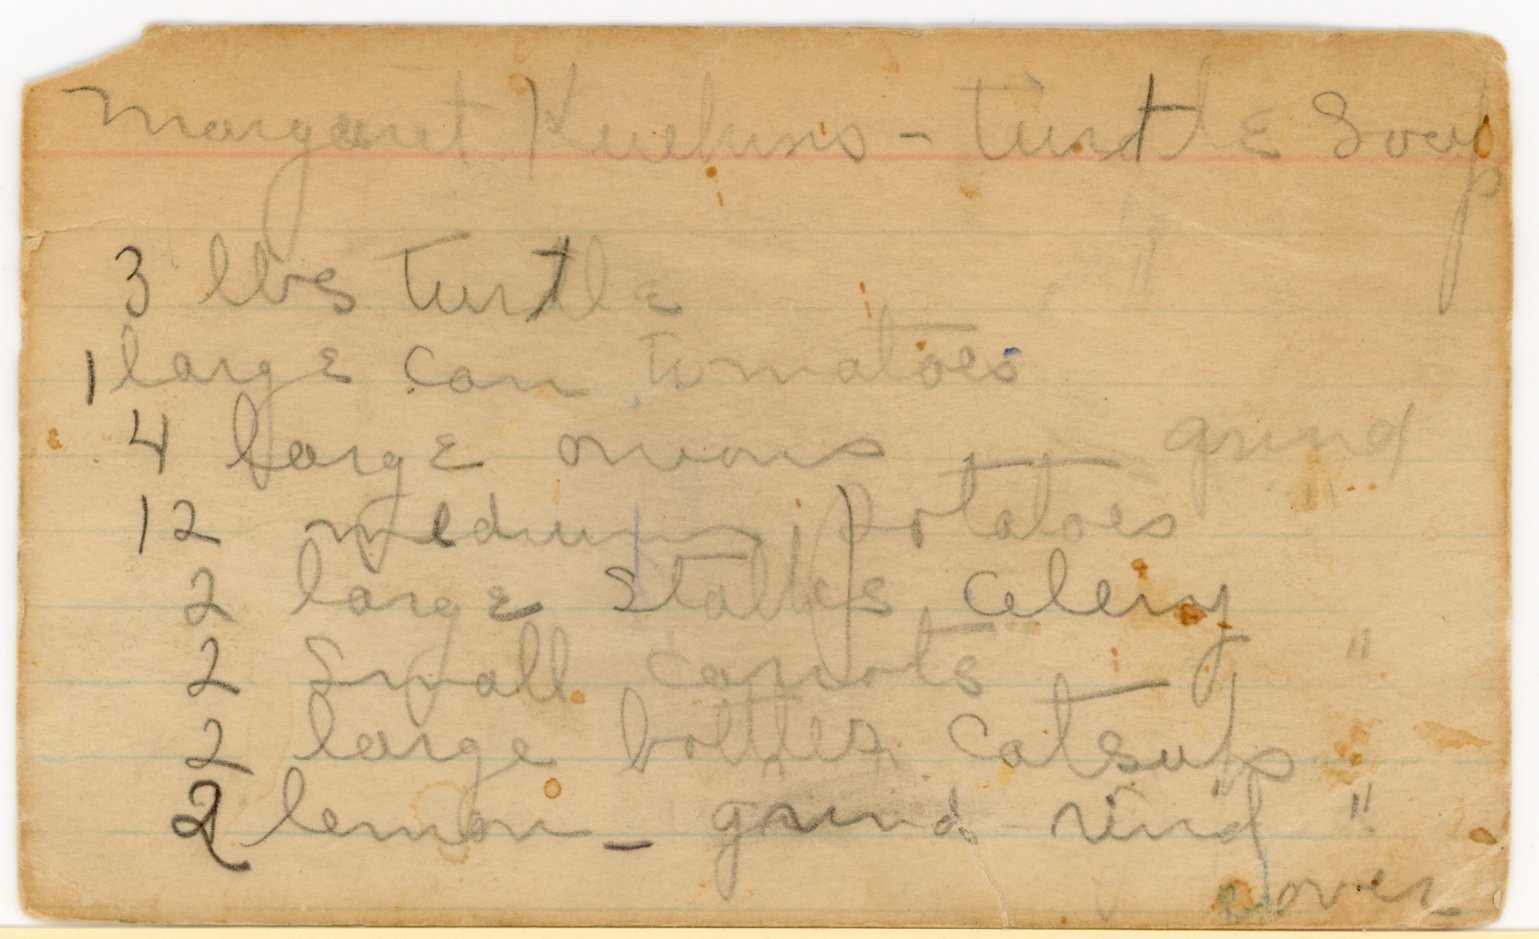 Margaret Kuehns - Turtle Soup
3 lbs Turtle
1 large can tomatoes
4 large onions grind
12 medium potatoes "
2 large stalks celery
2 small carrots "
2 large bottles catsup
2 lemon - grind rind "
over